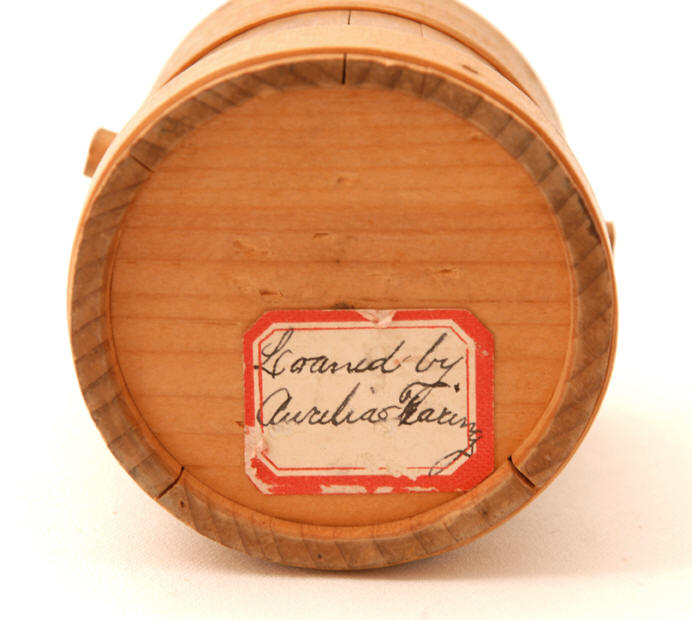 Loaned by
Aurelia Faxing